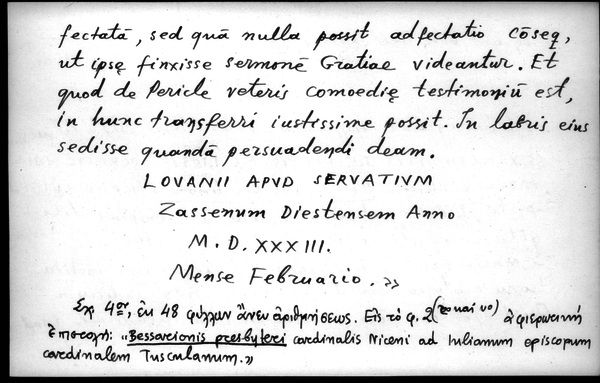 fectatā, sed quā nulla possit adfectatio cōseq̄,
ut ipsę finxisse sermonē Gratiae videantur. Et
quod de Pericle veteris comoedię testimoniū est,
in hunc transferri iustissime possit. In labris eius
sedisse quandā persuadendi deam.
LOVANII APVD SERVATIVM
Zassenum Diestensem Anno
M. D. XXXIII.
Mense Februario. »
Σχ. 4ον, ἐκ 48 φύλλων ἄνευ ἀριθμήσεως. Εἰς τὸ φ. 2 (το και vo) ἀφιερωτικὴ
ἐπιστολή: "Bessarionis presbyteri cardinalis Niceni ad Iulianum episcopum
cardinalem Tusculanum.»